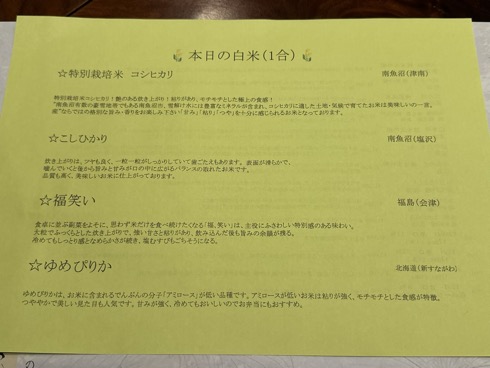 本日の白米(1合)
☆特別栽培米 コシヒカリ 南魚沼(津南)
特別栽培米コシヒカリ!艶のある炊き上がり!粘りがあり、モチモチとした極上の食感!
"南魚沼有数の豪雪地帯でもある南魚沼産、雪解け水には豊富なミネラルが含まれ、コシヒカリに適した土地・気候で育てたお米は美味しいの一言。
産"ならではの格別な旨み・香りをお楽しみ下さい「甘み」「粘り」「つや」を十分に感じられるお米となっております。
☆こしひかり 南魚沼(塩沢)
炊き上がりは、ツヤも良く、一粒一粒がしっかりしていて歯ごたえもあります。表面が滑らかで、
噛んでいくと後から旨みと甘みが口の中に広がるバランスの取れたお米です。
品質も高く、美味しいお米に仕上がっております。
☆福笑い 福島(会津)
食卓に並ぶ副菜をよそに、思わず米だけを食べ続けたくなる「福、笑い」は、主役にふさわしい特別感のある味わい。
大粒でふっくらとした炊き上がりで、強い甘さと粘りがあり、飲み込んだ後も旨みの余韻が残る。
冷めてもしっとり感となめらかさが続き、塩むすびもごちそうになる。
☆ゆめぴりか 北海道(新すながわ)
ゆめぴりかは、お米に含まれるでんぷんの分子「アミロース」が低い品種です。アミロースが低いお米は粘りが強く、モチモチとした食感が特徴。
つややかで美しい見た目も人気です。甘みが強く、冷めてもおいしいのでお弁当にもおすすめ。
の